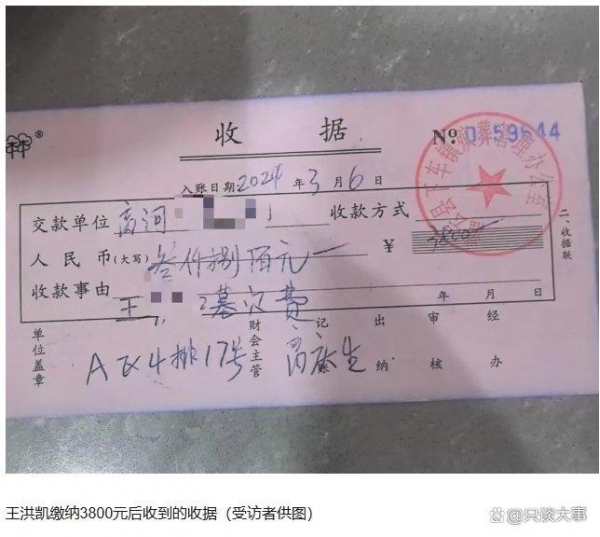 收 据
№ 0159544
入账日期：2024年3月6日
交款单位 高河 收款方式
人民币（大写）叁仟捌佰元 ¥ 3800
收款事由 王 墓穴费 年 月 日
二、收据联
单位盖章 财会主管 记 出纳 审核 经办
A区4排17号
王洪凯缴纳3800元后收到的收据（受访者供图）
只谈大事